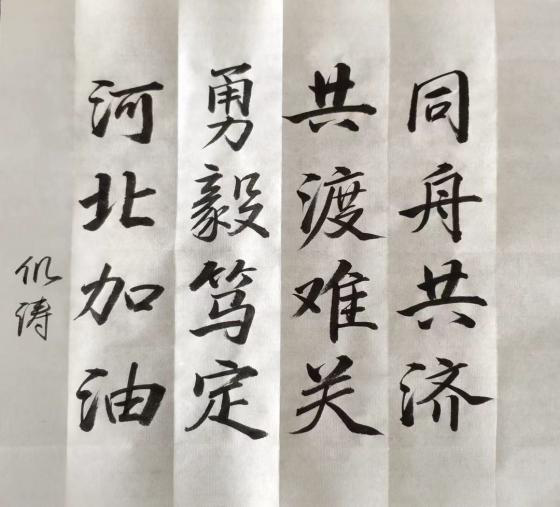 同舟共济
共渡难关
勇毅笃定
河北加油
仉涛